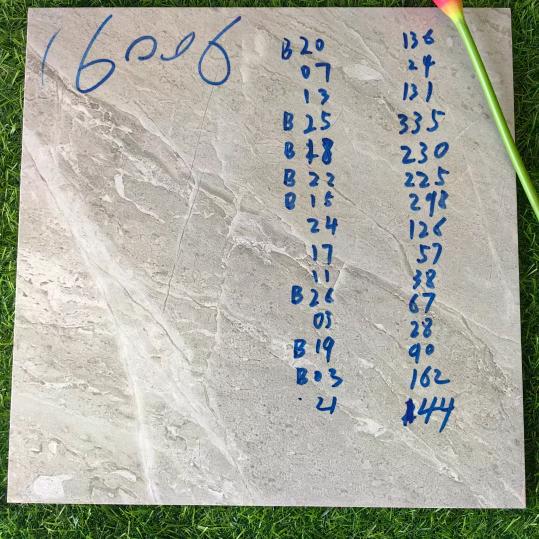 16006
B 20 136
07 24
13 131
B 25 335
B 18 230
B 22 225
B 15 298
24 126
17 57
11 38
B 26 67
05 28
B 19 90
B 03 162
21 144